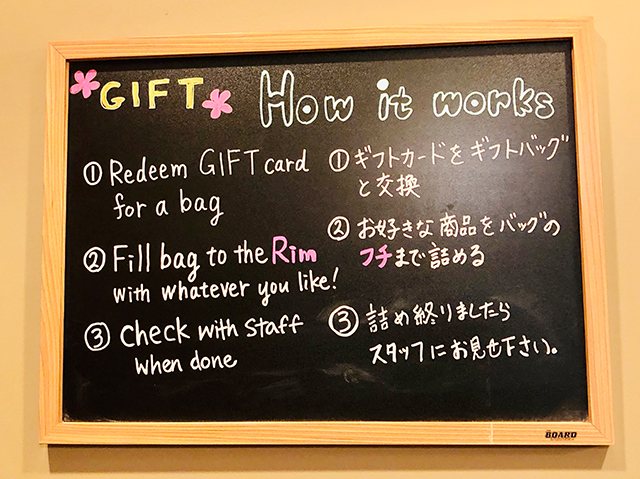 GIFT How it works
① Redeem GIFT card
for a bag
② Fill bag to the Rim
with whatever you like!
③ check with Staff
when done
① ギフトカードをギフトバッグ
と交換
② お好きな商品をバッグの
フチまで詰める
③ 詰め終りましたら
スタッフにお見せ下さい。
BOARD